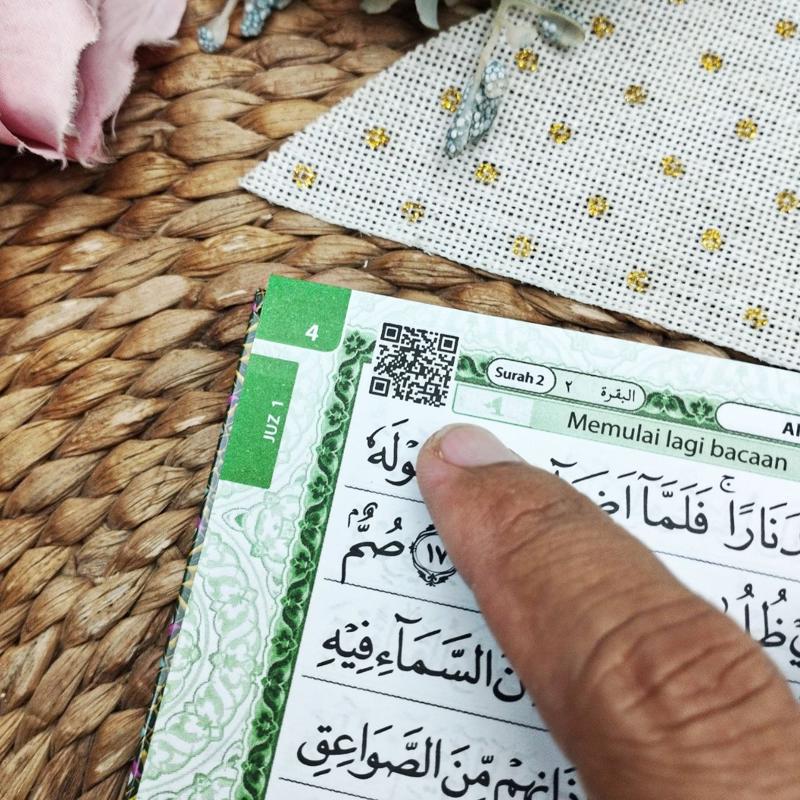 4
JUZ 1
Surah 2 ٢ البقرة
Memulai lagi bacaan
نَارًا ۚ فَلَمَّآ
١٧ صُمٌّ
السَّمَاۤءِ فِيْهِ
مِّنَ الصَّوَاعِقِ